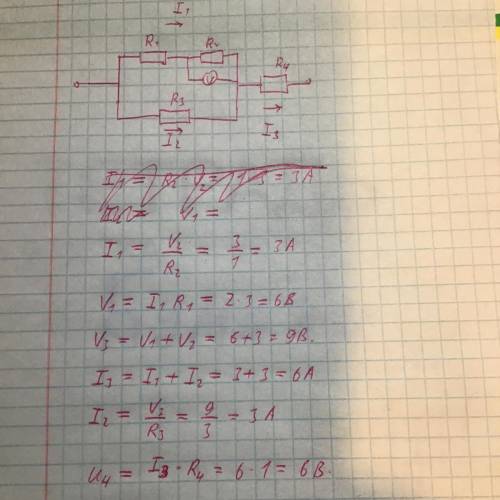 I₁
R₁ R₂
V
R₄
R₃
I₂
I₃
I₁ = V₂/R₂ = 3/1 = 3A
V₁ = I₁ R₁ = 2·3 = 6В
V₃ = V₁ + V₂ = 6+3 = 9В.
I₃ = I₁ + I₂ = 3+3 = 6A
I₂ = V₃/R₃ = 9/3 = 3A
U₄ = I₃ · R₄ = 6·1 = 6В.